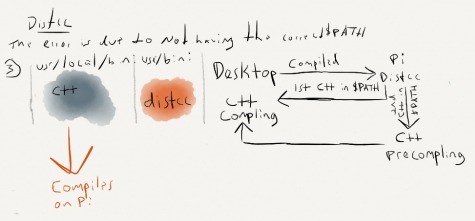 Distcc
The error is due to Not having the correct $PATH
3) usr/local/bin: usr/bin:
C++
distcc
Compiles
on Pi
Desktop
Compiled
Pi
Distcc
1st C++ in $PATH
C++
Compling
C++
precompling